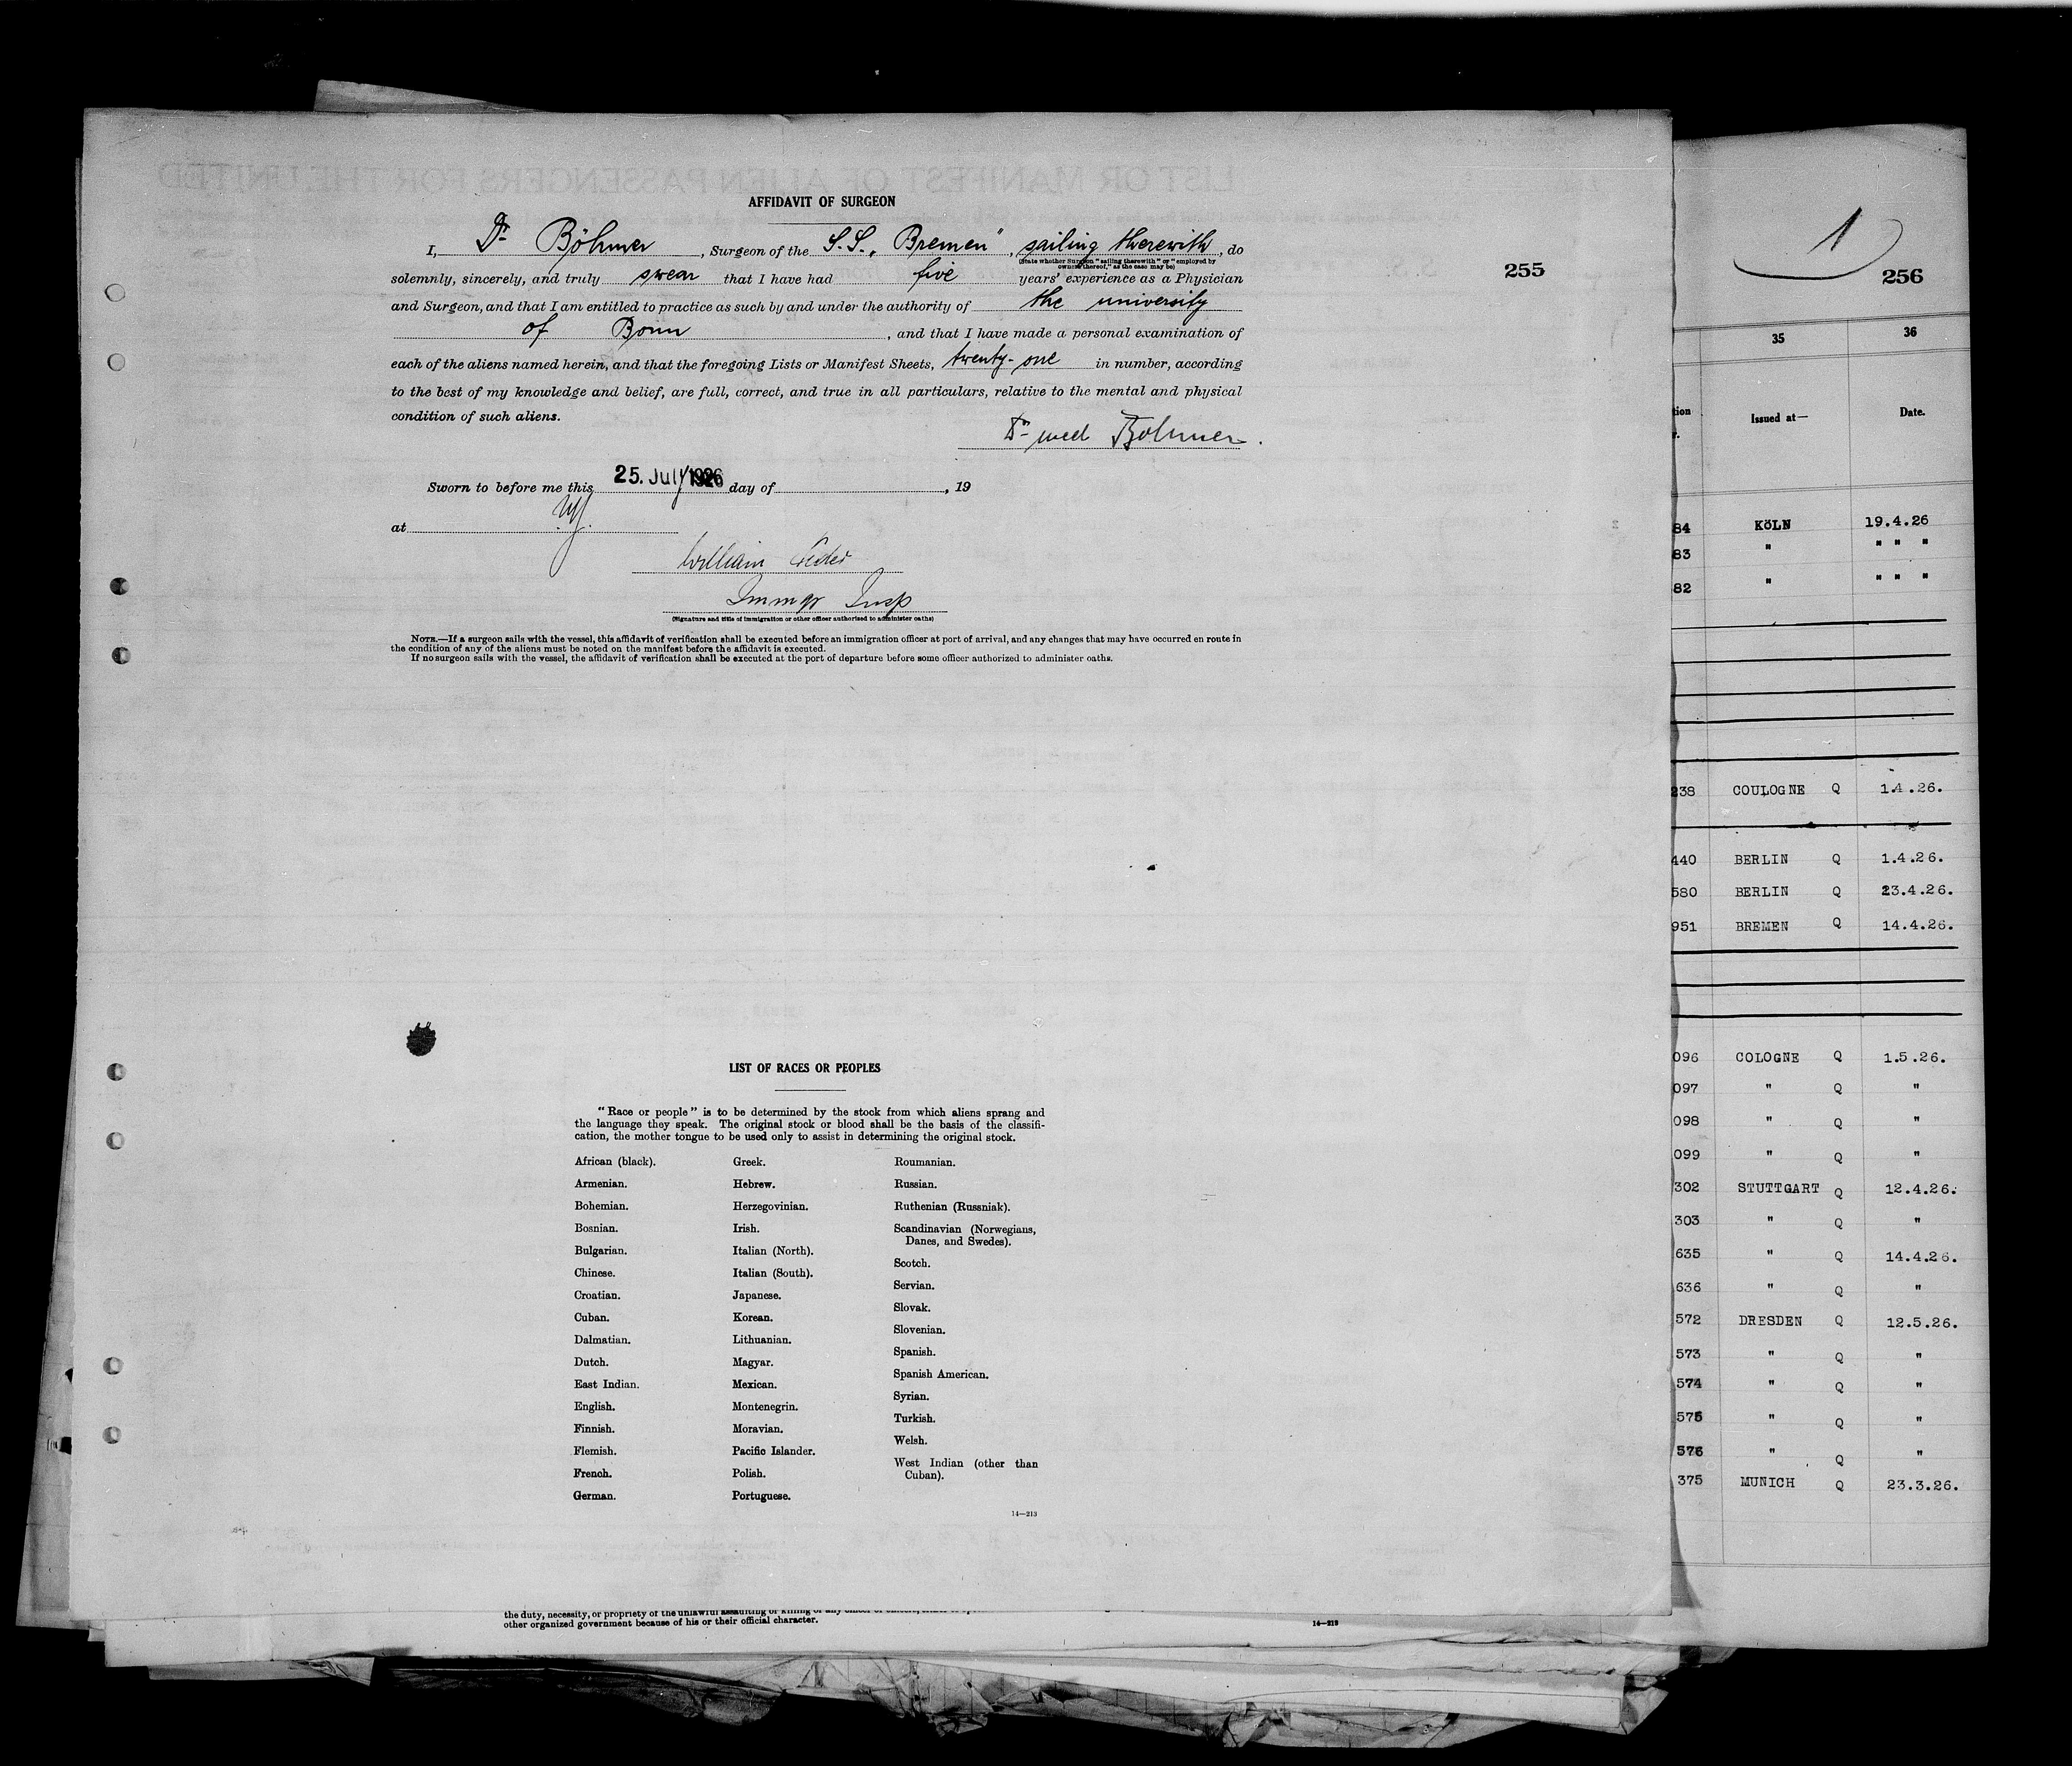 AFFIDAVIT OF SURGEON
I, Dr Böhmer, Surgeon of the S.S. „Bremen", sailing therewith, do
(State whether Surgeon "sailing therewith" or "employed by
owners thereof," as the case may be)
solemnly, sincerely, and truly swear that I have had five years' experience as a Physician
and Surgeon, and that I am entitled to practice as such by and under the authority of the university
of Bonn, and that I have made a personal examination of
each of the aliens named herein, and that the foregoing Lists or Manifest Sheets, twenty-one in number, according
to the best of my knowledge and belief, are full, correct, and true in all particulars, relative to the mental and physical
condition of such aliens.
Dr med Böhmer.
Sworn to before me this 25. July 1926 day of , 19
at NY.
William
Immgr Insp
(Signature and title of immigration or other officer authorized to administer oaths)
NOTE.—If a surgeon sails with the vessel, this affidavit of verification shall be executed before an immigration officer at port of arrival, and any changes that may have occurred en route in
the condition of any of the aliens must be noted on the manifest before the affidavit is executed.
If no surgeon sails with the vessel, the affidavit of verification shall be executed at the port of departure before some officer authorized to administer oaths.
255
LIST OF RACES OR PEOPLES
"Race or people" is to be determined by the stock from which aliens sprang and
the language they speak. The original stock or blood shall be the basis of the classifi-
cation, the mother tongue to be used only to assist in determining the original stock.
African (black).
Armenian.
Bohemian.
Bosnian.
Bulgarian.
Chinese.
Croatian.
Cuban.
Dalmatian.
Dutch.
East Indian.
English.
Finnish.
Flemish.
French.
German.
Greek.
Hebrew.
Herzegovinian.
Irish.
Italian (North).
Italian (South).
Japanese.
Korean.
Lithuanian.
Magyar.
Mexican.
Montenegrin.
Moravian.
Pacific Islander.
Polish.
Portuguese.
Roumanian.
Russian.
Ruthenian (Russniak).
Scandinavian (Norwegians,
Danes, and Swedes).
Scotch.
Servian.
Slovak.
Slovenian.
Spanish.
Spanish American.
Syrian.
Turkish.
Welsh.
West Indian (other than
Cuban).
14—213
the duty, necessity, or propriety of the unlawful assaulting or killing of any officer or officers,
other organized government because of his or their official character.
14—213
1
256
35 36
tion Issued at— Date.
84 KöLN 19.4.26
83 " " " "
82 " " " "
238 COULOGNE Q 1.4.26.
440 BERLIN Q 1.4.26.
580 BERLIN Q 23.4.26.
951 BREMEN Q 14.4.26.
096 COLOGNE Q 1.5.26.
097 " Q "
098 " Q "
099 " Q "
302 STUTTGART Q 12.4.26.
303 " Q "
635 " Q 14.4.26.
636 " Q "
572 DRESDEN Q 12.5.26.
573 " Q "
574 " Q "
575 " Q "
576 " Q "
375 MUNICH Q 23.3.26.